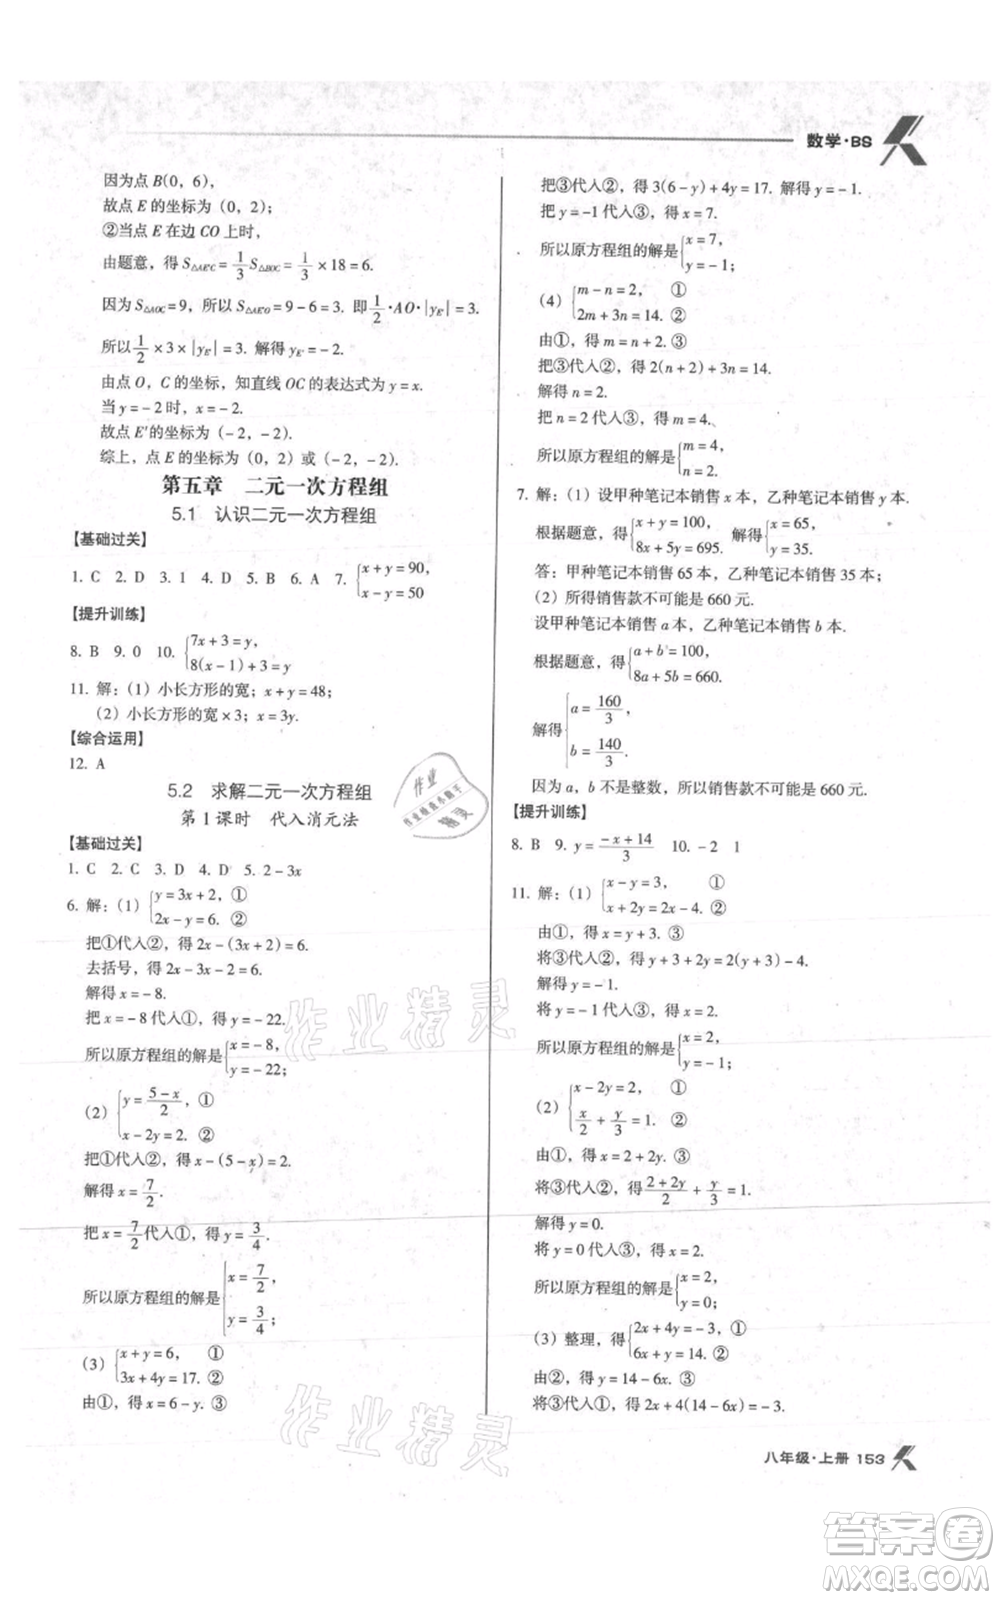 数学·BS
因为点 B(0, 6),
故点 E 的坐标为 (0, 2);
②当点 E 在边 CO 上时,
由题意, 得 S△AE′C = 1/3 S△BOC = 1/3 × 18 = 6.
因为 S△AOC = 9, 所以 S△AE′O = 9 - 6 = 3. 即 1/2 · AO · |yE′| = 3.
所以 1/2 × 3 × |yE′| = 3. 解得 yE′ = -2.
由点 O, C 的坐标, 知直线 OC 的表达式为 y = x.
当 y = -2 时, x = -2.
故点 E′的坐标为 (-2, -2).
综上, 点 E 的坐标为 (0, 2) 或 (-2, -2).
第五章 二元一次方程组
5.1 认识二元一次方程组
【基础过关】
1. C 2. D 3. 1 4. D 5. B 6. A 7. {x + y = 90,
x - y = 50
【提升训练】
8. B 9. 0 10. {7x + 3 = y,
8(x - 1) + 3 = y
11. 解: (1) 小长方形的宽; x + y = 48;
(2) 小长方形的宽 × 3; x = 3y.
【综合运用】
12. A
5.2 求解二元一次方程组
第 1 课时 代入消元法
【基础过关】
1. C 2. C 3. D 4. D 5. 2 - 3x
6. 解: (1) {y = 3x + 2, ①
2x - y = 6. ②
把①代入②, 得 2x - (3x + 2) = 6.
去括号, 得 2x - 3x - 2 = 6.
解得 x = -8.
把 x = -8 代入①, 得 y = -22.
所以原方程组的解是 {x = -8,
y = -22;
(2) {y = (5 - x)/2, ①
x - 2y = 2. ②
把①代入②, 得 x - (5 - x) = 2.
解得 x = 7/2.
把 x = 7/2 代入①, 得 y = 3/4.
所以原方程组的解是 {x = 7/2,
y = 3/4;
(3) {x + y = 6, ①
3x + 4y = 17. ②
由①, 得 x = 6 - y. ③
把③代入②, 得 3(6 - y) + 4y = 17. 解得 y = -1.
把 y = -1 代入③, 得 x = 7.
所以原方程组的解是 {x = 7,
y = -1;
(4) {m - n = 2, ①
2m + 3n = 14. ②
由①, 得 m = n + 2. ③
把③代入②, 得 2(n + 2) + 3n = 14.
解得 n = 2.
把 n = 2 代入③, 得 m = 4.
所以原方程组的解是 {m = 4,
n = 2.
7. 解: (1) 设甲种笔记本销售 x 本, 乙种笔记本销售 y 本.
根据题意, 得 {x + y = 100, 解得 {x = 65,
8x + 5y = 695. y = 35.
答: 甲种笔记本销售 65 本, 乙种笔记本销售 35 本;
(2) 所得销售款不可能是 660 元.
设甲种笔记本销售 a 本, 乙种笔记本销售 b 本.
根据题意, 得 {a + b = 100,
8a + 5b = 660.
解得 {a = 160/3,
b = 140/3.
因为 a, b 不是整数, 所以销售款不可能是 660 元.
【提升训练】
8. B 9. y = (-x + 14)/3 10. -2 1
11. 解: (1) {x - y = 3, ①
x + 2y = 2x - 4. ②
由①, 得 x = y + 3. ③
将③代入②, 得 y + 3 + 2y = 2(y + 3) - 4.
解得 y = -1.
将 y = -1 代入③, 得 x = 2.
所以原方程组的解是 {x = 2,
y = -1;
(2) {x - 2y = 2, ①
x/2 + y/3 = 1. ②
由①, 得 x = 2 + 2y. ③
将③代入②, 得 (2 + 2y)/2 + y/3 = 1.
解得 y = 0.
将 y = 0 代入③, 得 x = 2.
所以原方程组的解是 {x = 2,
y = 0;
(3) 整理, 得 {2x + 4y = -3, ①
6x + y = 14. ②
由②, 得 y = 14 - 6x. ③
将③代入①, 得 2x + 4(14 - 6x) = -3.
八年级·上册 153
作业精灵
作业精灵
作业
精灵
答案卷
MXQE.COM